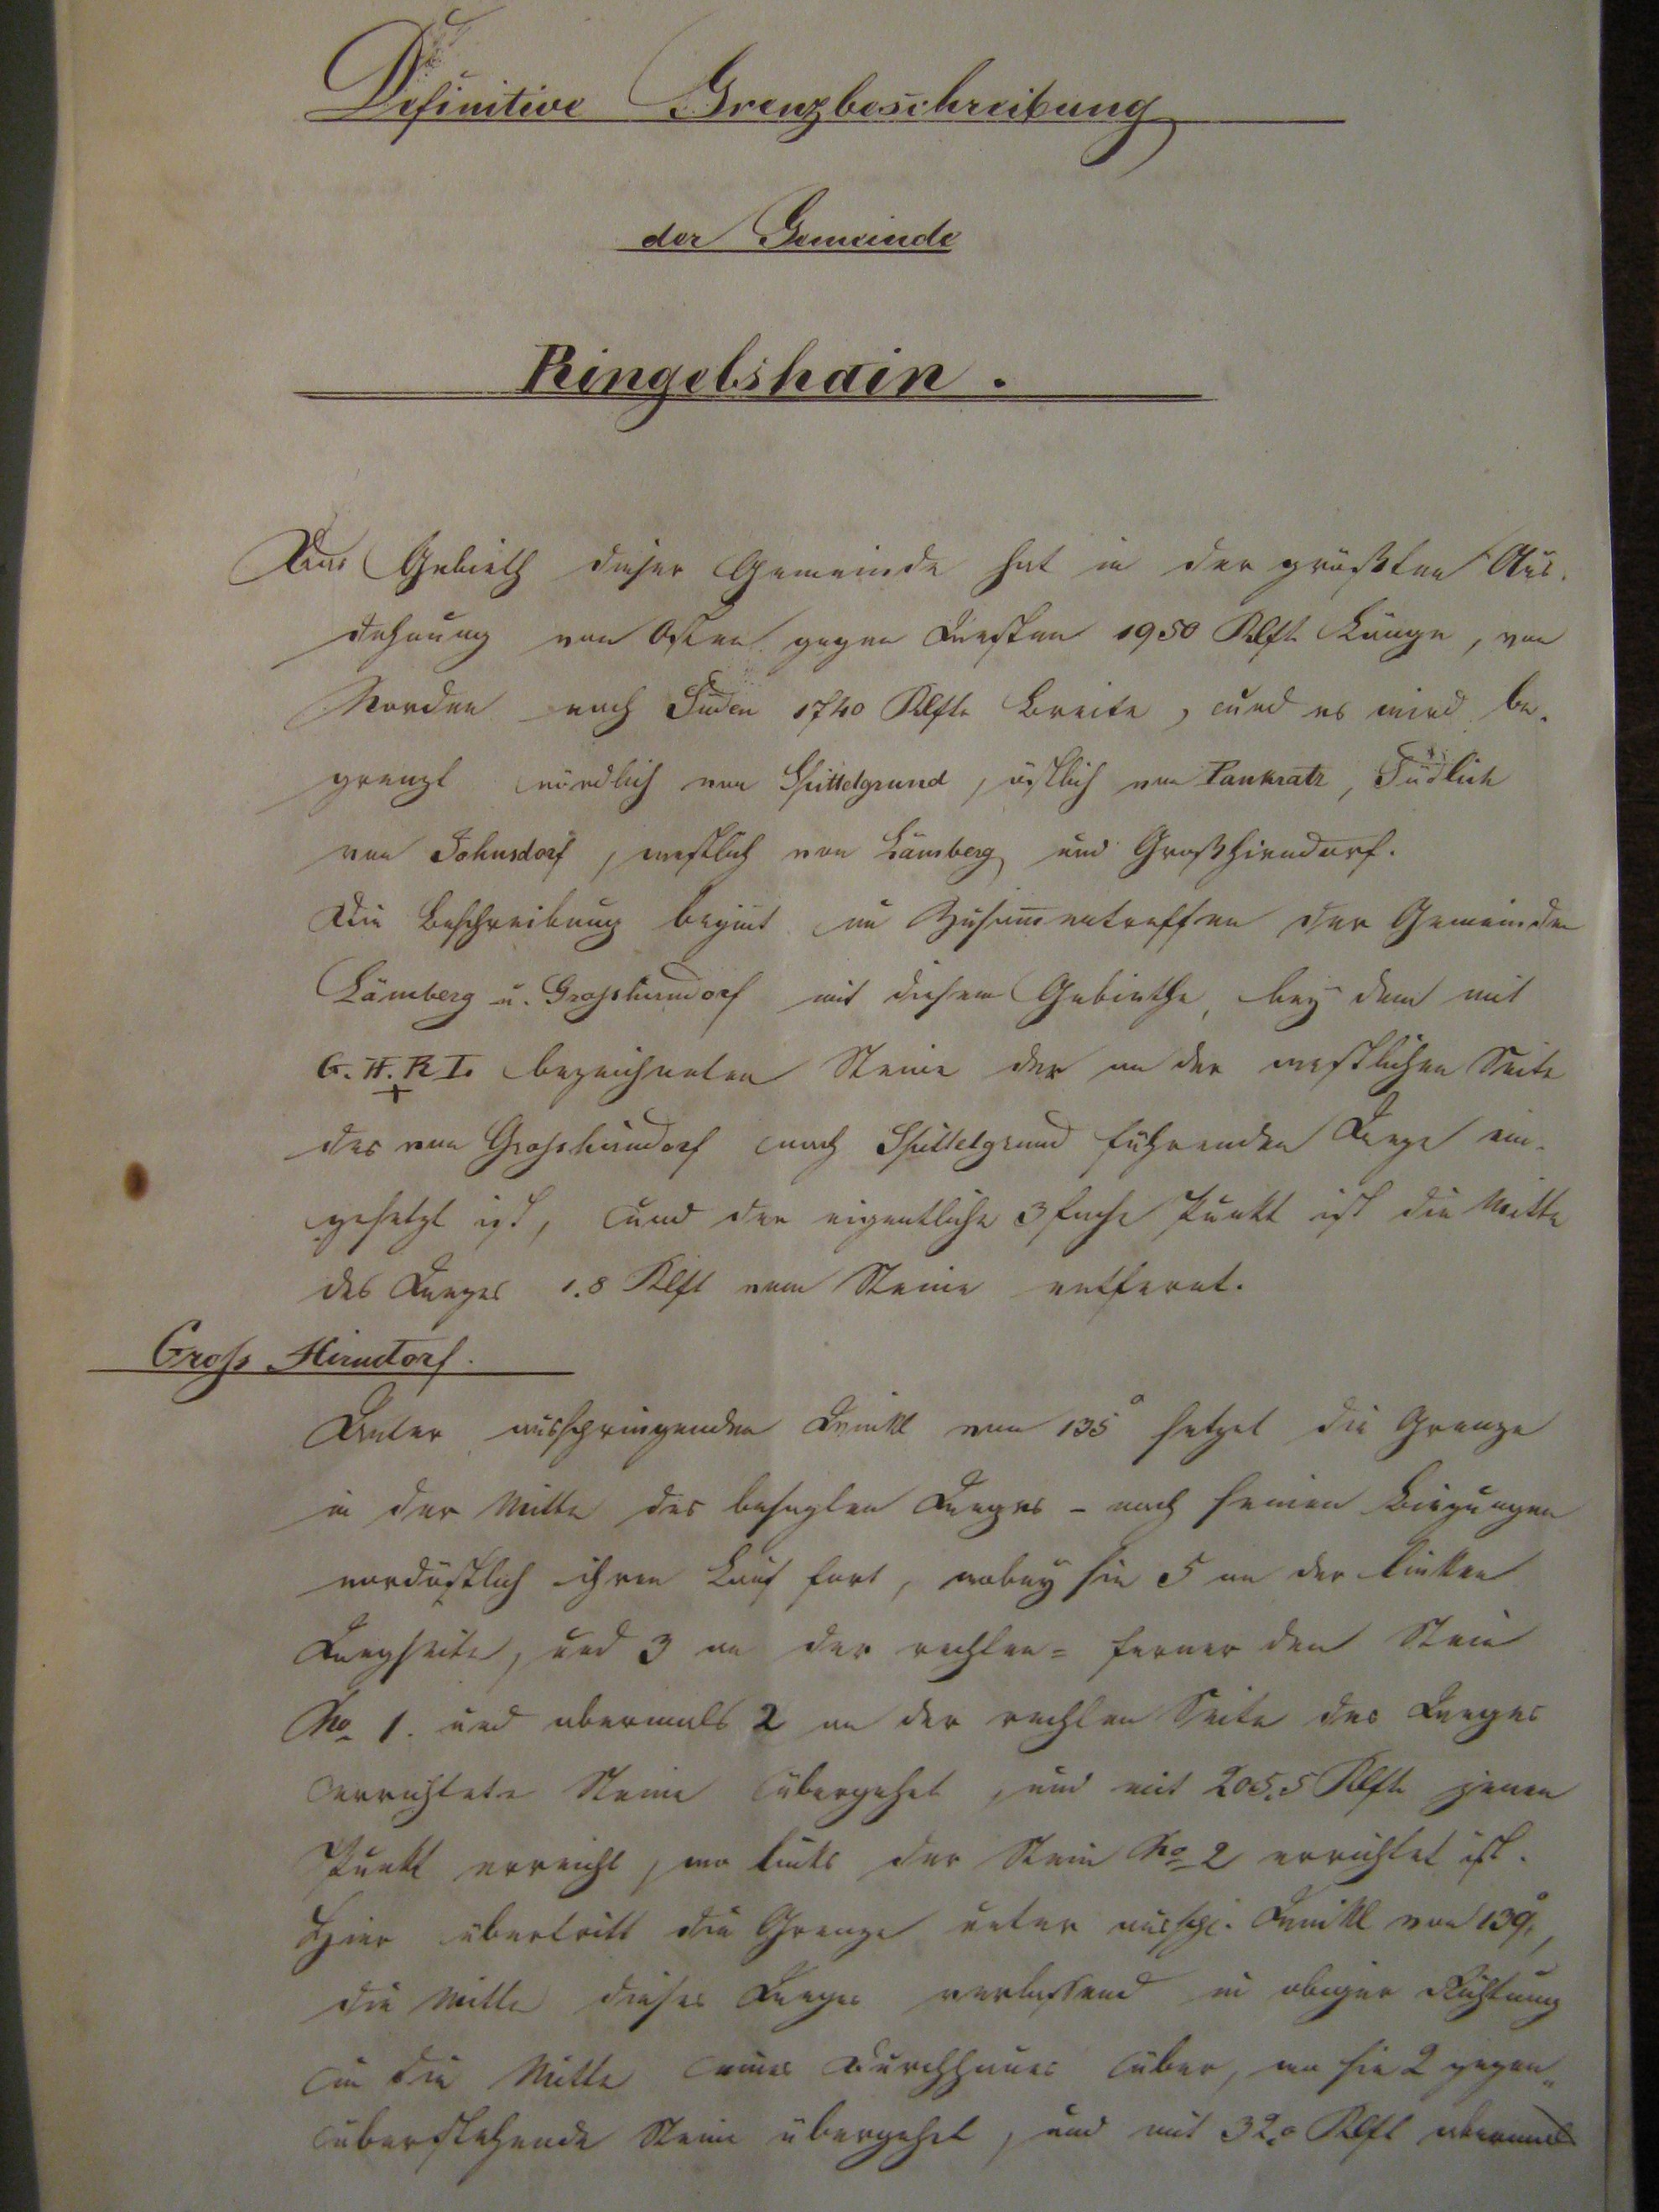 Definitive Grenzbeschreibung
der Gemeinde
Ringelshain.
Das Gebieth dieser Gemeinde hat in der größten Aus-
dehnung von Osten gegen Westen 1950 Klft. Länge, von
Norden nach Süden 1740 Klft. Breite, und es wird be-
grenzt nördlich von Spittelgrund, östlich von Pankratz, Südlich
von Johnsdorf, westlich von Lämberg und Großhirndorf.
Die Beschreibung begint im Zusam̅entreffen der Gemeinden
Lämberg u. Grosshirndorf mit diesem Gebiethe, bey dem mit
G. H. R I. bezeichneten Steine der an der westlichen Seite
des von Grosshirndorf nach Spittelgrund führenden Wege ein-
gesetzt ist, und der eigentliche 3fache Punkt ist die Mitte
des Weges 1.8 Klft vom Steine entfernt.
Gross Hirndorf.
Unter ausspringenden Winkl von 135° setzet die Grenze
in der Mitte des besagten Weges - nach seinen Biegungen
nordöstlich ihren Lauf fort, wobey sie 5 an der linken
Wegseite, und 3 an der rechten= ferner den Stein
No 1. und abermals 2 an der rechten Seite des Weges
errichtete Steine übergehet, und mit 205.5 Klft. jenen
Punkt erreicht, wo links der Stein No 2 errichtet ist.
Hier übertritt die Grenze unter ausspr. Winkl von 139°,
die Mitte dieses Weges verlassend in obiger Richtung
in die Mitte eines Durchhaues über, wo sie 2 gegen-
überstehende Steine übergehet, und mit 32.0 Klft abermals